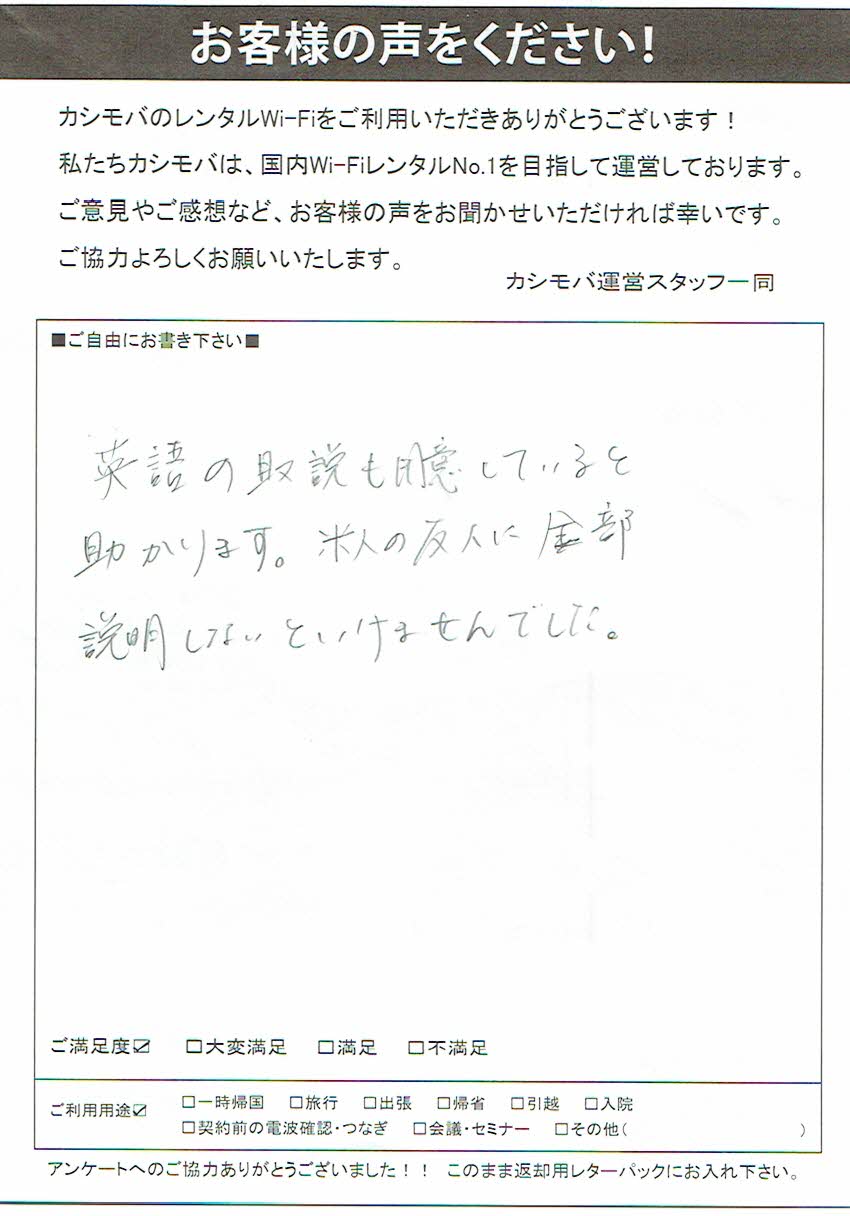 お客様の声をください!
カシモバのレンタルWi-Fiをご利用いただきありがとうございます!
私たちカシモバは、国内Wi-FiレンタルNo.1を目指して運営しております。
ご意見やご感想など、お客様の声をお聞かせいただければ幸いです。
ご協力よろしくお願いいたします。
カシモバ運営スタッフ一同
■ご自由にお書き下さい■
英語の取説も用意していると
助かります。米人の友人に全部
説明しないといけませんでした。
ご満足度☑ □大変満足 □満足 □不満足
ご利用用途☑ □一時帰国 □旅行 □出張 □帰省 □引越 □入院
□契約前の電波確認・つなぎ □会議・セミナー □その他( )
アンケートへのご協力ありがとうございました!! このまま返却用レターパックにお入れ下さい。